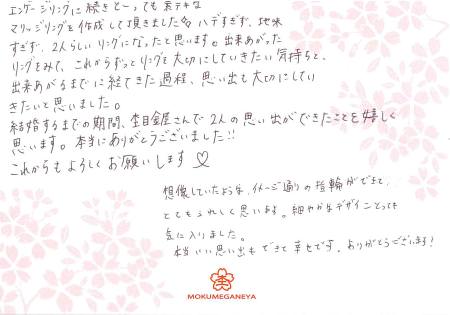 エンゲージリングに続きとーっても素テキな
マリッジリングを作成して頂きました♪ ハデすぎず、地味
すぎず、2人らしいリングになったと思います。出来あがった
リングをみて、これからずっとリングを大切にしていきたい気持ちと、
出来あがるまでに経てきた過程、思い出も大切にしてい
きたいと思いました。
結婚するまでの期間、杢目金屋さんで2人の思い出ができたことを嬉しく
思います。本当にありがとうございました!!
これからもよろしくお願いします♡
想像していたような、イメージ通りの指輪ができて、
とてもうれしく思います。細やかなデザインとっても
気に入りました。
本当いい思い出もできて幸せです。ありがとうございます!
MOKUMEGANEYA